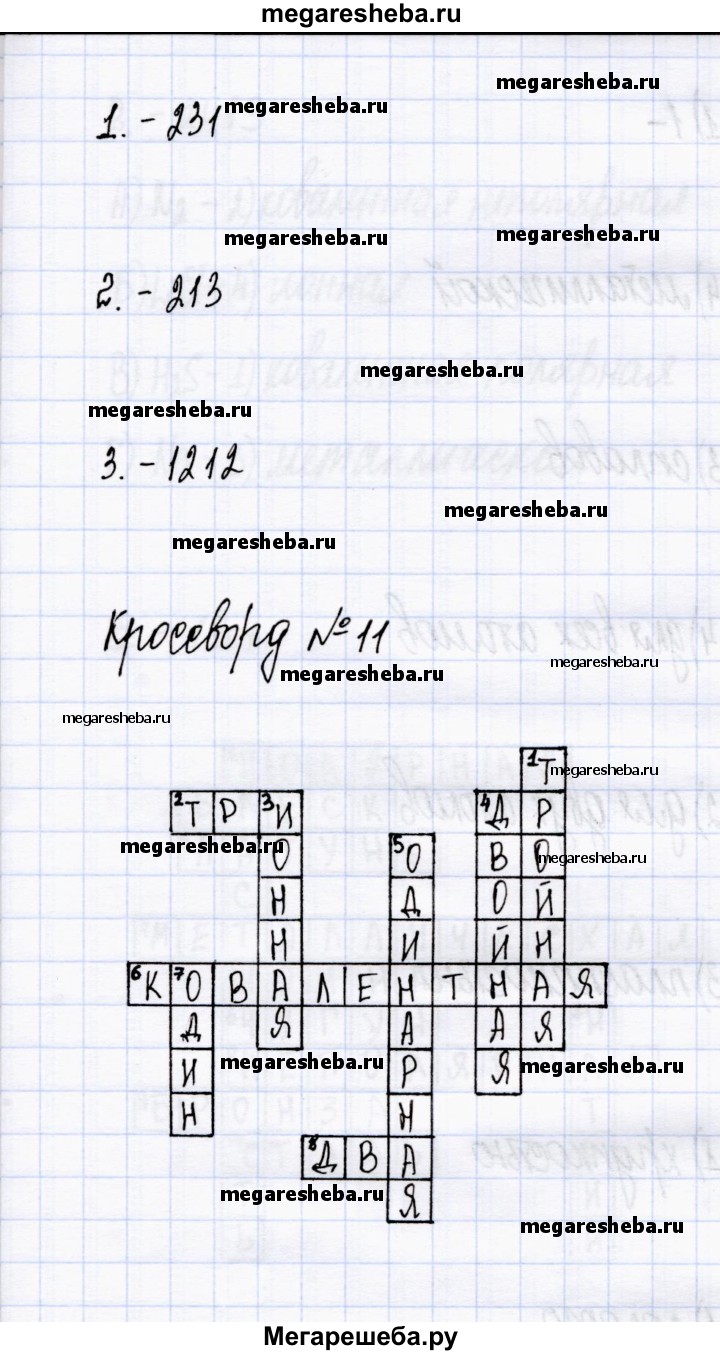 megaresheba.ru
megaresheba.ru
1. - 231 megaresheba.ru
megaresheba.ru megaresheba.ru
2. - 213
megaresheba.ru
megaresheba.ru
3. - 1212
megaresheba.ru
megaresheba.ru
Кроссворд № 11
megaresheba.ru
megaresheba.ru
megaresheba.ru
1Т megaresheba.ru
2Т Р 3И 4Д Р
megaresheba.ru О 5О В О megaresheba.ru
Н Д О Й
Н И Й Н
6К 7О В А Л Е Н Т Н А Я
Д Я А А Я
И megaresheba.ru Р Я megaresheba.ru
Н Н
8Д В А
megaresheba.ru Я
megaresheba.ru
Мегарешеба.ру